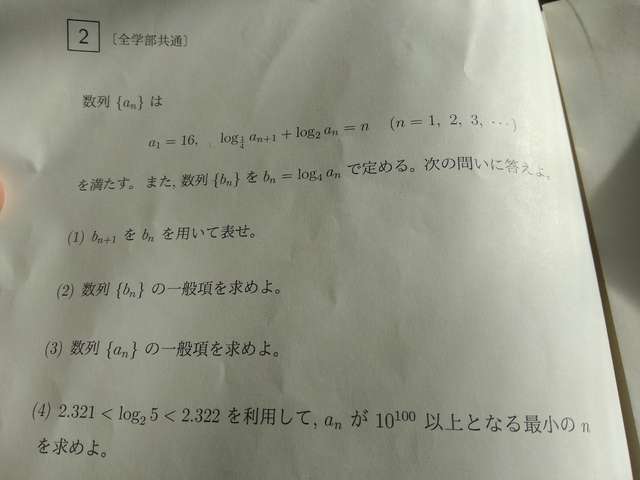 2 〔全学部共通〕
数列 {aₙ} は
a₁ = 16, log_{1/4} aₙ₊₁ + log₂ aₙ = n (n = 1, 2, 3, ⋯)
を満たす。また, 数列 {bₙ} を bₙ = log₄ aₙ で定める。次の問いに答えよ。
(1) bₙ₊₁ を bₙ を用いて表せ。
(2) 数列 {bₙ} の一般項を求めよ。
(3) 数列 {aₙ} の一般項を求めよ。
(4) 2.321 < log₂ 5 < 2.322 を利用して, aₙ が 10¹⁰⁰ 以上となる最小の n
を求めよ。